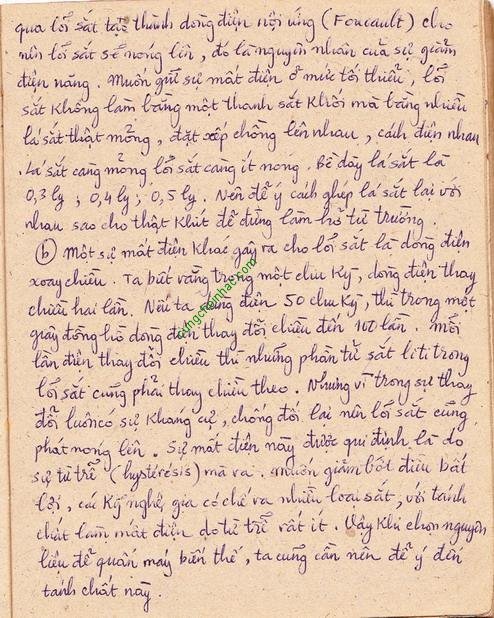 qua lõi sắt tạo thành dòng điện nội ứng (Foucault) cho
nên lõi sắt sẽ nóng lên, đó là nguyên nhân của sự giảm
điện năng. Muốn giữ sự mất điện ở mức tối thiểu, lõi
sắt không làm bằng một thanh sắt khối mà bằng nhiều
lá sắt thật mỏng, đặt xếp chồng lên nhau, cách điện nhau
. Lá sắt càng mỏng lõi sắt càng ít nóng. Bề dầy lá sắt là
0,3 ly ; 0,4 ly ; 0,5 ly. Nên để ý cách ghép lá sắt lại với
nhau sao cho thật khít để đừng làm hở từ trường.
(b) Một sự mất điện khác gây ra cho lõi sắt là dòng điện
xoay chiều. Ta biết rằng trong một chu kỳ, dòng điện thay
chiều hai lần. Nếu ta dùng điện 50 chu kỳ, thì trong một
giây đồng hồ dòng điện thay đổi chiều đến 100 lần. Mỗi
lần điện thay đổi chiều thì những phần tử sắt li ti trong
lõi sắt cũng phải thay chiều theo. Nhưng vì trong sự thay
đổi luôn có sự kháng cự, chống đối lại nên lõi sắt cũng
phát nóng lên. Sự mất điện này được qui định là do
sự từ trễ (hystérésis) mà ra. Muốn giảm bớt điều bất
lợi, các kỹ nghệ gia có chế ra nhiều loại sắt, với tánh
chất làm mất điện do từ trễ rất ít. Vậy khi chọn nguyên
liệu để quấn máy biến thế, ta cũng cần nên để ý đến
tánh chất này.